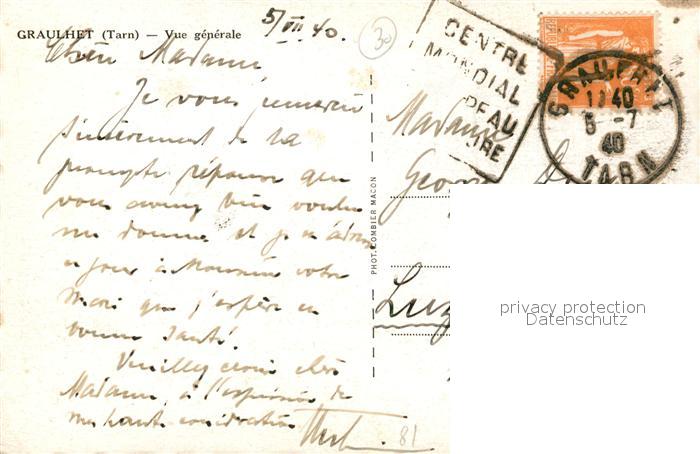 GRAULHET (Tarn) — Vue générale
5/VII 40.
30
Chère Madame
Je vous remercie
sincèrement de la
prompte réponse que
vous avez bien voulu
me donner et je m'adresse
ce jour à Monsieur votre
Mari que j'espère en
bonne santé.
Veuillez croire chère
Madame, à l'expression de
ma haute considération
81
PHOT. COMBIER MACON
CENTRE
MONDIAL
PEAU
IRE
GRAULHET
11 40
5 -7
40
TARN
Madame
Georg
Luz
privacy protection
Datenschutz